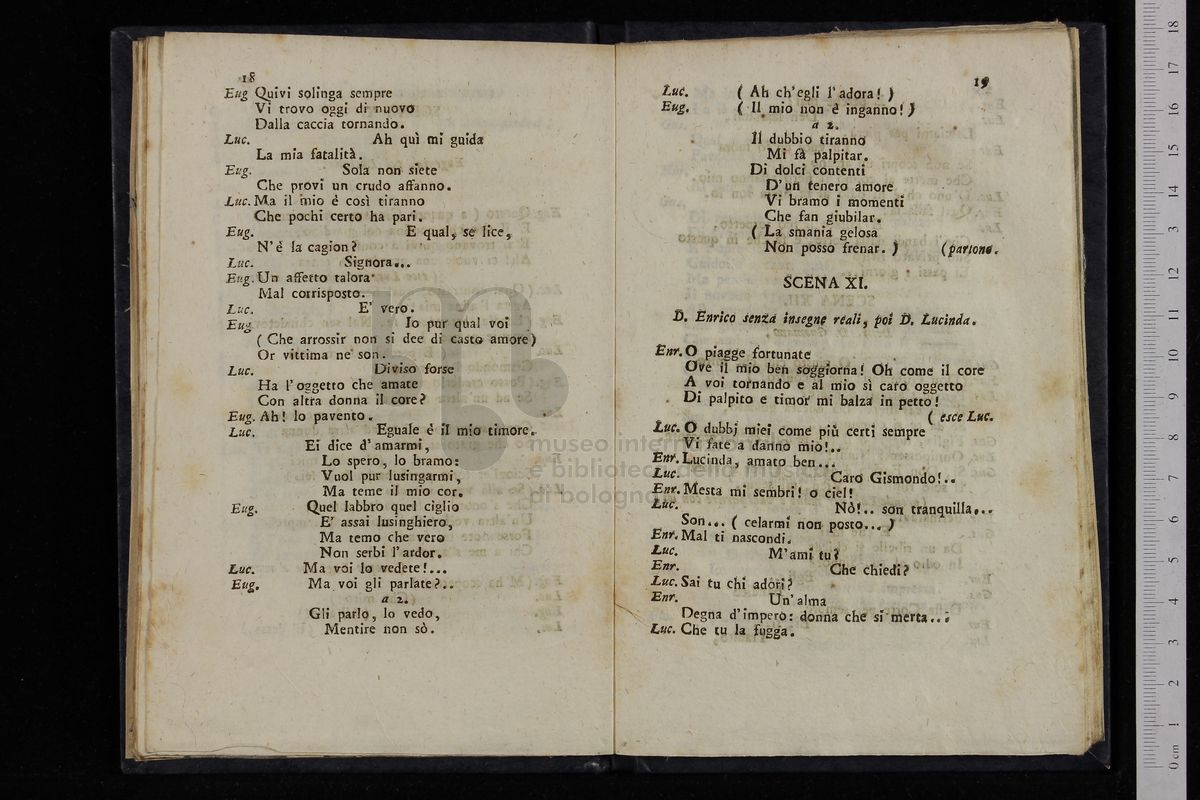 18
Eug Quivi solinga sempre
Vi trovo oggi di nuovo
Dalla caccia tornando.
Luc. Ah quì mi guida
La mia fatalità.
Eug. Sola non siete
Che provi un crudo affanno.
Luc. Ma il mio è così tiranno
Che pochi certo ha pari.
Eug. E qual, se lice,
N'è la cagion?
Luc. Signora...
Eug. Un affetto talora
Mal corrisposto.
Luc. E' vero.
Eug. Io pur qual voi
( Che arrossir non si dee di casto amore)
Or vittima ne son.
Luc. Diviso forse
Ha l'oggetto che amate
Con altra donna il core?
Eug. Ah! lo pavento.
Luc. Eguale è il mio timore.
Ei dice d'amarmi,
Lo spero, lo bramo:
Vuol pur lusingarmi,
Ma teme il mio cor.
Eug. Quel labbro quel ciglio
E' assai lusinghiero,
Ma temo che vero
Non serbi l'ardor.
Luc. Ma voi lo vedete!...
Eug. Ma voi gli parlate?..
a 2.
Gli parlo, lo vedo,
Mentire non sò.
19
Luc. ( Ah ch'egli l'adora! )
Eug. ( Il mio non è inganno! )
a 2.
Il dubbio tiranno
Mi fà palpitar.
Di dolci contenti
D'un tenero amore
Vi bramo i momenti
Che fan giubilar.
( La smania gelosa
Non posso frenar. ) (partono.
SCENA XI.
D. Enrico senza insegne reali, poi D. Lucinda.
Enr. O piagge fortunate
Ove il mio ben soggiorna! Oh come il core
A voi tornando e al mio sì caro oggetto
Di palpito e timor mi balza in petto!
( esce Luc.
Luc. O dubbj miei come più certi sempre
Vi fate a danno mio!..
Enr. Lucinda, amato ben...
Luc. Caro Gismondo!..
Enr. Mesta mi sembri! o ciel!
Luc. Nò!.. son tranquilla...
Son... ( celarmi non posto... )
Enr. Mal ti nascondi.
Luc. M'ami tu?
Enr. Che chiedi?
Luc. Sai tu chi adori?
Enr. Un'alma
Degna d'impero: donna che si merta...
Luc. Che tu la fugga.
museo internazionale
e biblioteca della musica
di bologna
0 cm 1 2 3 4 5 6 7 8 9 10 11 12 13 14 15 16 17 18